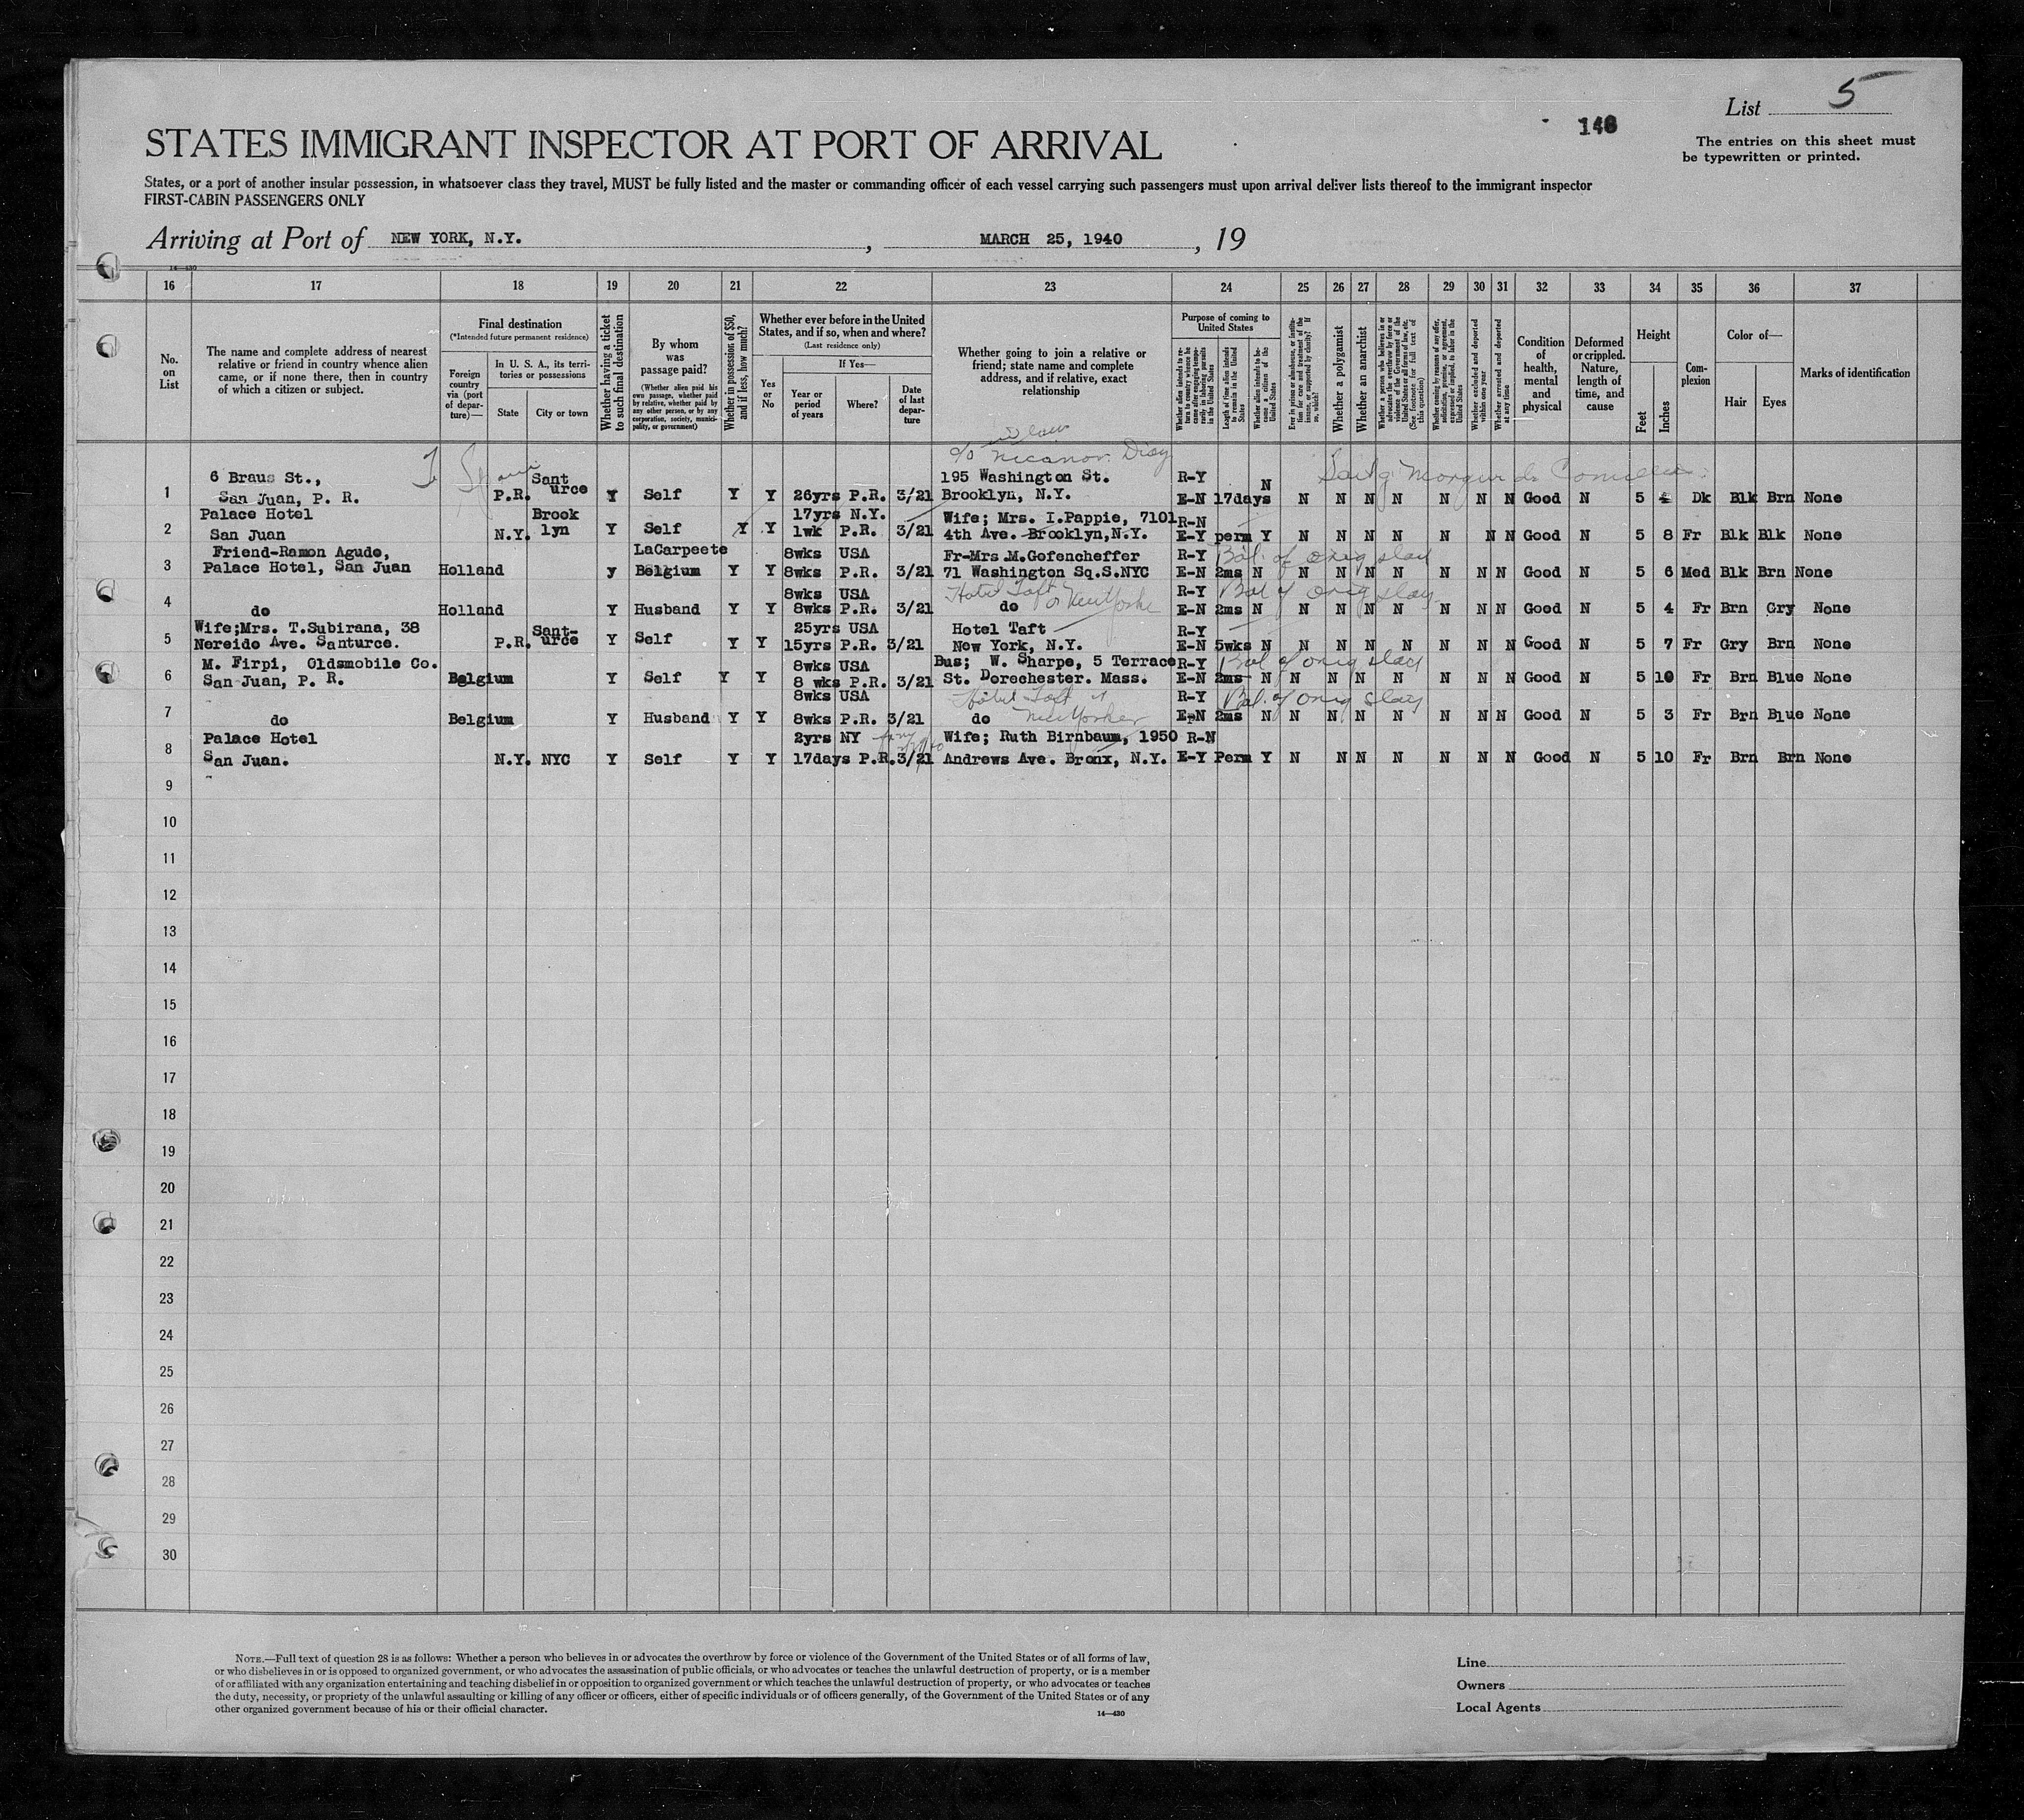 List 5
146
The entries on this sheet must
be typewritten or printed.
STATES IMMIGRANT INSPECTOR AT PORT OF ARRIVAL
States, or a port of another insular possession, in whatsoever class they travel, MUST be fully listed and the master or commanding officer of each vessel carrying such passengers must upon arrival deliver lists thereof to the immigrant inspector
FIRST-CABIN PASSENGERS ONLY
Arriving at Port of NEW YORK, N.Y. , MARCH 25, 1940 , 19
14—430
16 17 18 19 20 21 22 23 24 25 26 27 28 29 30 31 32 33 34 35 36 37
No.
on
List
The name and complete address of nearest
relative or friend in country whence alien
came, or if none there, then in country
of which a citizen or subject.
Final destination
(*Intended future permanent residence)
Foreign
country
via (port
of depar-
ture)—
In U. S. A., its terri-
tories or possessions
State
City or town
Whether having a ticket
to such final destination
By whom
was
passage paid?
(Whether alien paid his
own passage, whether paid
by relative, whether paid by
any other person, or by any
corporation, society, munici-
pality, or government)
Whether in possession of $50,
and if less, how much?
Whether ever before in the United
States, and if so, when and where?
(Last residence only)
Yes
or
No
If Yes—
Year or
period
of years
Where?
Date
of last
depar-
ture
Whether going to join a relative or
friend; state name and complete
address, and if relative, exact
relationship
Purpose of coming to
United States
Whether alien intends to re-
turn to country whence he
came after engaging tempo-
rarily in laboring pursuits
in the United States
Length of time alien intends
to remain in the United
States
Whether alien intends to be-
come a citizen of the
United States
Ever in prison or almshouse, or institu-
tion for care and treatment of the
insane, or supported by charity? If
so, which?
Whether a polygamist
Whether an anarchist
Whether a person who believes in or
advocates the overthrow by force or
violence of the Government of the
United States or all forms of law, etc.
(See footnote for full text of
this question)
Whether coming by reasons of any offer,
solicitation, promise, or agreement,
expressed or implied, to labor in the
United States
Whether excluded and deported
within one year
Whether arrested and deported
at any time
Condition
of
health,
mental
and
physical
Deformed
or crippled.
Nature,
length of
time, and
cause
Height
Feet
Inches
Com-
plexion
Color of—
Hair
Eyes
Marks of identification
c/o Nicanor Diaz
6 Braus St., Sant 195 Washington St. R-Y N
1 San Juan, P. R. P.R. urce Y Self Y Y 26yrs P.R. 3/21 Brooklyn, N.Y. E-N 17days N N N N N N N Good N 5 4 Dk Blk Brn None
Palace Hotel Brook 17yrs N.Y. Wife; Mrs. I.Pappie, 7101 R-N
2 San Juan N.Y. lyn Y Self Y Y 1wk P.R. 3/21 4th Ave. Brooklyn,N.Y. E-Y perm Y N N N N N N N Good N 5 8 Fr Blk Blk None
Friend-Ramon Agudo, LaCarpeete 8wks USA Fr-Mrs M.Gofencheffer R-Y Bal. of orig stay
3 Palace Hotel, San Juan Holland y Belgium Y Y 8wks P.R. 3/21 71 Washington Sq.S.NYC E-N 2ms N N N N N N N N Good N 5 6 Med Blk Brn None
8wks USA Hotel Taft or New Yorker R-Y Bal of orig stay
4 do Holland Y Husband Y Y 8wks P.R. 3/21 do E-N 2ms N N N N N N N N Good N 5 4 Fr Brn Gry None
Wife;Mrs. T.Subirana, 38 Sant- 25yrs USA Hotel Taft R-Y
5 Nereido Ave. Santurce. P.R. urce Y Self Y Y 15yrs P.R. 3/21 New York, N.Y. E-N 5wks N N N N N N N N Good N 5 7 Fr Gry Brn None
M. Firpi, Oldsmobile Co. 8wks USA Bus; W. Sharpe, 5 Terrace R-Y Bal of orig stay
6 San Juan, P. R. Belgium Y Self Y Y 8 wks P.R. 3/21 St. Dorechester. Mass. E-N 2ms N N N N N N N N Good N 5 10 Fr Brn Blue None
8wks USA Hotel Taft or New Yorker R-Y Bal. of orig stay
7 do Belgium Y Husband Y Y 8wks P.R. 3/21 do E-N 2ms N N N N N N N N Good N 5 3 Fr Brn Blue None
Palace Hotel 2yrs NY Wife; Ruth Birnbaum, 1950 R-N
8 San Juan. N.Y. NYC Y Self Y Y 17days P.R. 3/21 Andrews Ave. Bronx, N.Y. E-Y Perm Y N N N N N N N Good N 5 10 Fr Brn Brn None
9
10
11
12
13
14
15
16
17
18
19
20
21
22
23
24
25
26
27
28
29
30
NOTE.—Full text of question 28 is as follows: Whether a person who believes in or advocates the overthrow by force or violence of the Government of the United States or of all forms of law,
or who disbelieves in or is opposed to organized government, or who advocates the assassination of public officials, or who advocates or teaches the unlawful destruction of property, or is a member
of or affiliated with any organization entertaining and teaching disbelief in or opposition to organized government or which teaches the unlawful destruction of property, or who advocates or teaches
the duty, necessity, or propriety of the unlawful assaulting or killing of any officer or officers, either of specific individuals or of officers generally, of the Government of the United States or of any
other organized government because of his or their official character.
14—430
Line
Owners
Local Agents